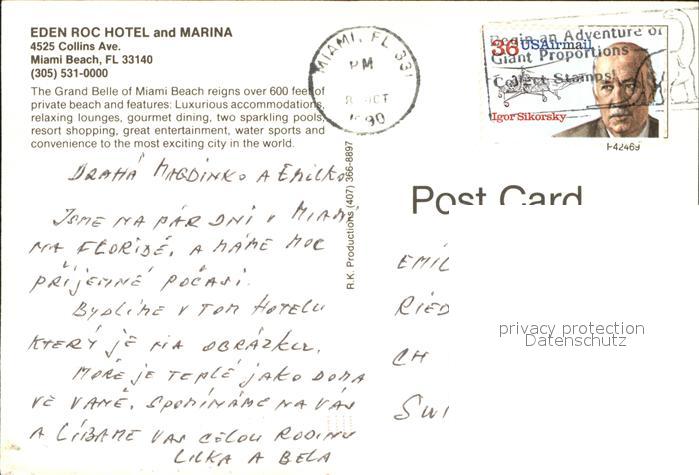 EDEN ROC HOTEL and MARINA
4525 Collins Ave.
Miami Beach, FL 33140
(305) 531-0000
The Grand Belle of Miami Beach reigns over 600 feet of
private beach and features: Luxurious accommodations,
relaxing lounges, gourmet dining, two sparkling pools,
resort shopping, great entertainment, water sports and
convenience to the most exciting city in the world.
MIAMI, FL 331
PM
OCT
1990
Begin an Adventure of
Giant Proportions
Collect Stamps!
36 USAirmail
Igor Sikorsky
F42469
R.K. Productions (407) 366-8897
Post Card
DRAHÁ MAGDINKO A EMILKO
JSME NA PÁR DNÍ V MIAMI
NA FLORIDĚ, A MÁME MOC
PŘÍJEMNÉ POČASÍ.
BYDLÍME V TOM HOTELU
KTERÝ JE NA OBRÁZKU.
MOŘE JE TEPLÉ JAKO DOMA
VE VANĚ. SPOMÍNÁME NA VÁS
A LÍBÁME VAS CELOU RODINU
LILKA A BELA
EMIL
RIED
CH
SWI
privacy protection
Datenschutz